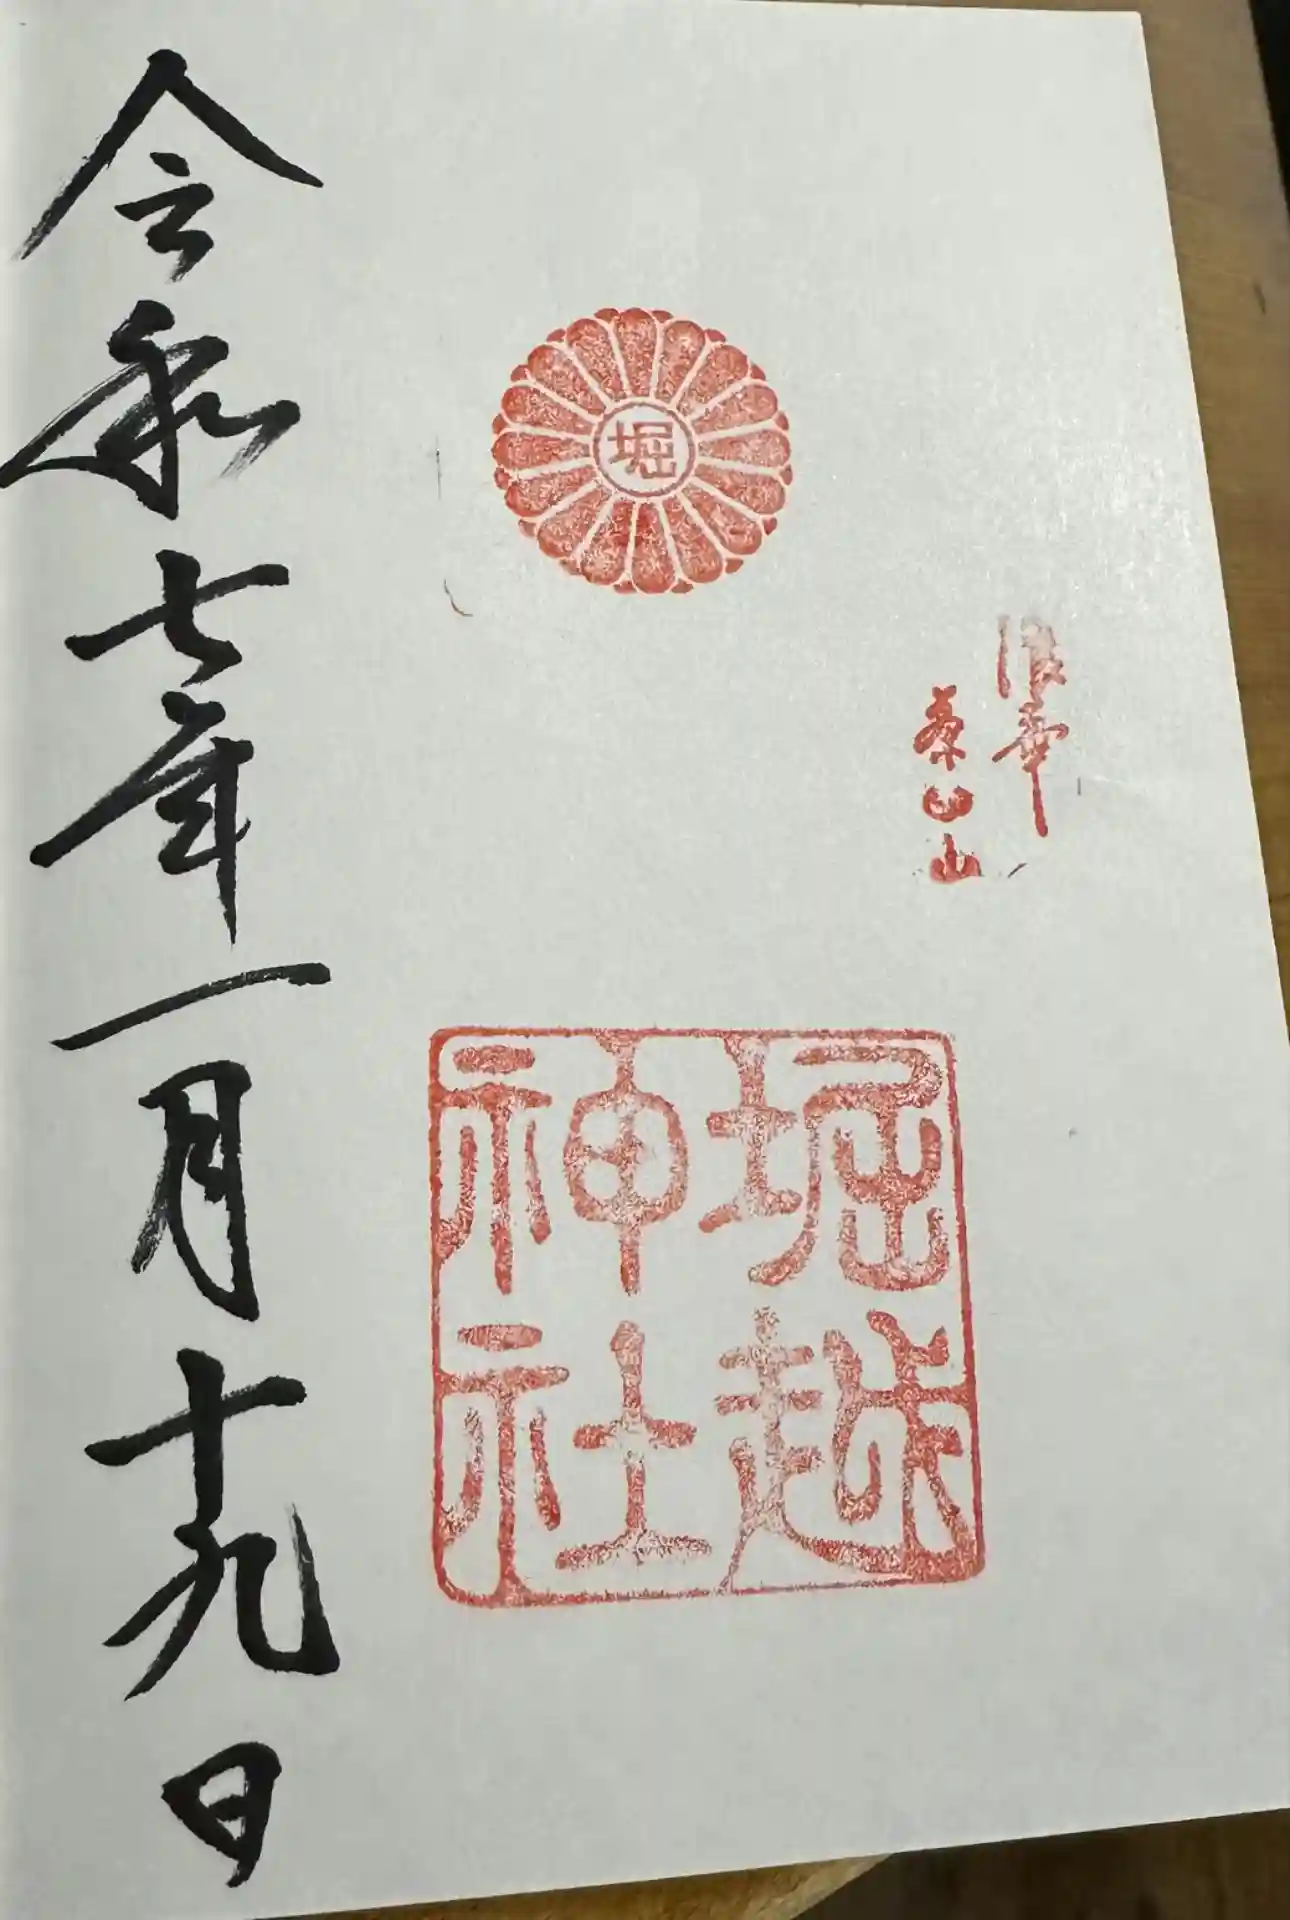 浪華
茶臼山
堀
堀越
神社
令和七年一月十九日